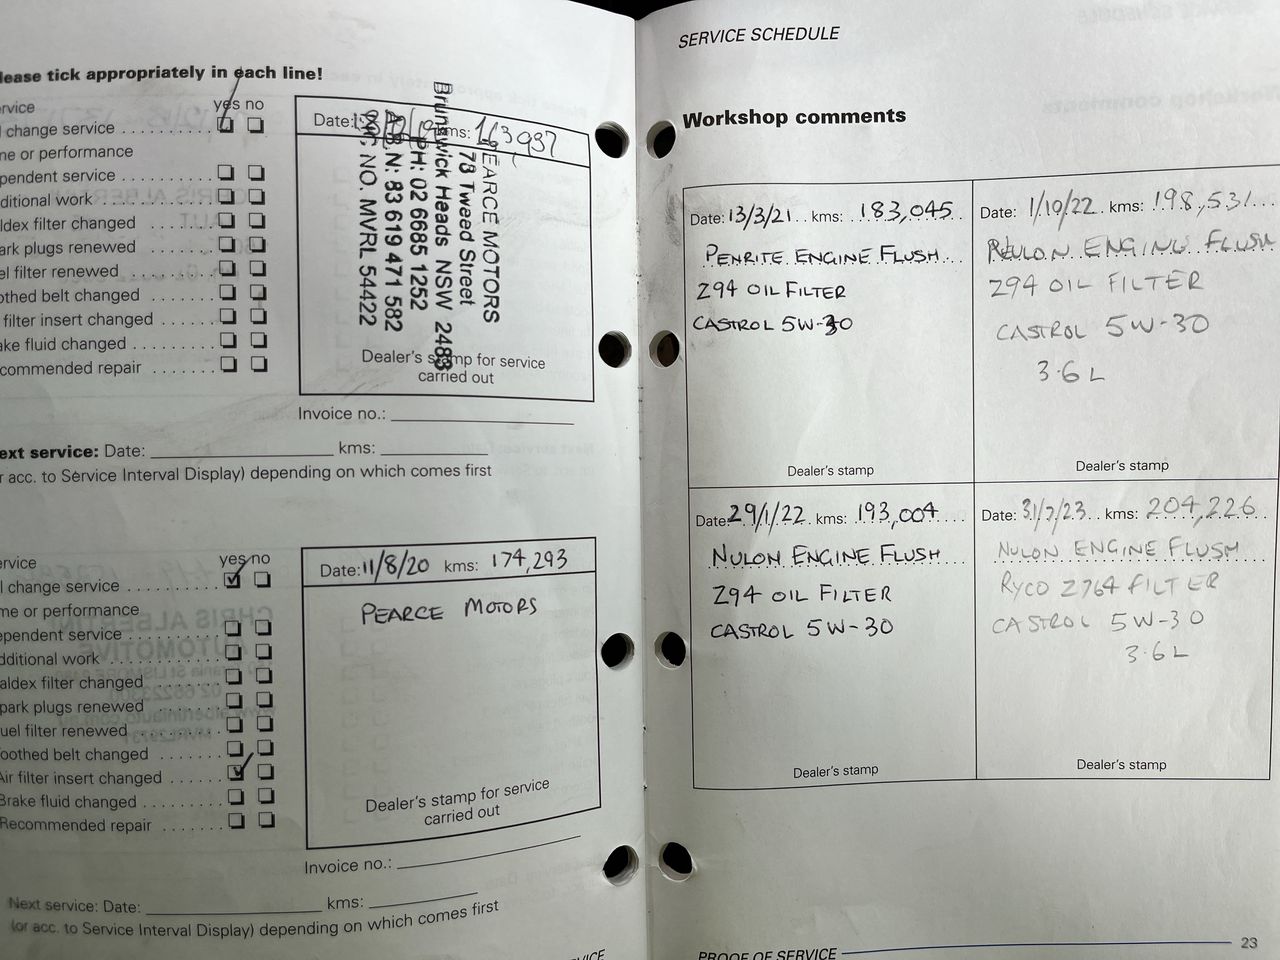 lease tick appropriately in each line!
rvice yes no
l change service
ne or performance
pendent service
ditional work
ldex filter changed
ark plugs renewed
el filter renewed
othed belt changed
filter insert changed
ake fluid changed
commended repair
Date: kms: 163937
EARCE MOTORS
78 Tweed Street
Brunswick Heads NSW 2483
PH: 02 6685 1252
N: 83 619 471 582
NO. MVRL 54422
Dealer's stamp for service
carried out
Invoice no.:
ext service: Date: kms:
r acc. to Service Interval Display) depending on which comes first
ervice yes no
l change service
me or performance
ependent service
dditional work
aldex filter changed
park plugs renewed
uel filter renewed
oothed belt changed
Air filter insert changed
Brake fluid changed
Recommended repair
Date: 11/8/20 kms: 174,293
PEARCE MOTORS
Dealer's stamp for service
carried out
Invoice no.:
Next service: Date: kms:
(or acc. to Service Interval Display) depending on which comes first
SERVICE SCHEDULE
Workshop comments
Date: 13/3/21 kms: 183,045
PENRITE ENGINE FLUSH
Z94 OIL FILTER
CASTROL 5W-30
Dealer's stamp
Date: 1/10/22 kms: 198,531
NULON ENGINE FLUSH
Z94 OIL FILTER
CASTROL 5W-30
3.6 L
Dealer's stamp
Date: 29/1/22 kms: 193,004
NULON ENGINE FLUSH
Z94 OIL FILTER
CASTROL 5W-30
Dealer's stamp
Date: 31/7/23 kms: 204,226
NULON ENGINE FLUSH
RYCO Z764 FILTER
CASTROL 5W-30
3.6 L
Dealer's stamp
PROOF OF SERVICE 23